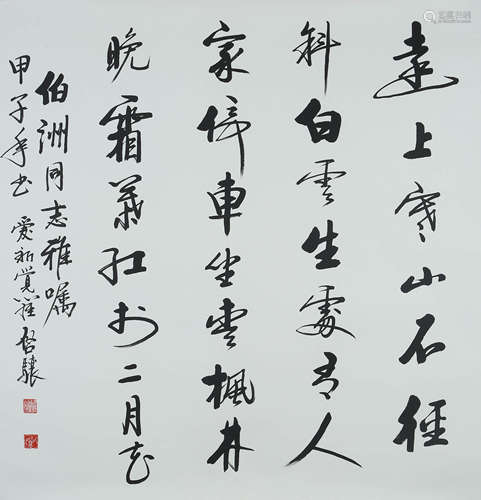 遠上寒山石徑
斜白雲生處有人
家停車坐愛楓林
晚霜葉紅於二月花
伯洲同志雅嘱
甲子年书 愛新覺羅 啓驤